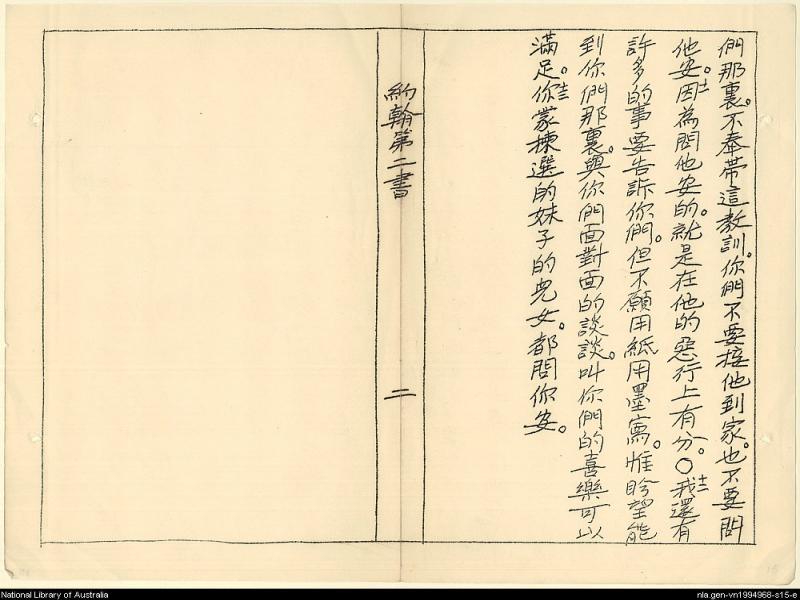 們那裏。不奉帶這教訓。你們不要接他到家。也不要問
他安。十一因為問他安的。就是在他的惡行上有分。○十二我還有
許多的事要告訴你們。但不願用紙用墨寫。惟盼望能
到你們那裏。與你們面對面的談談。叫你們的喜樂可以
滿足。十三你蒙揀選的妹子的兒女。都問你安。
約翰第二書
二
National Library of Australia
nla.gen-vn1994968-s15-e